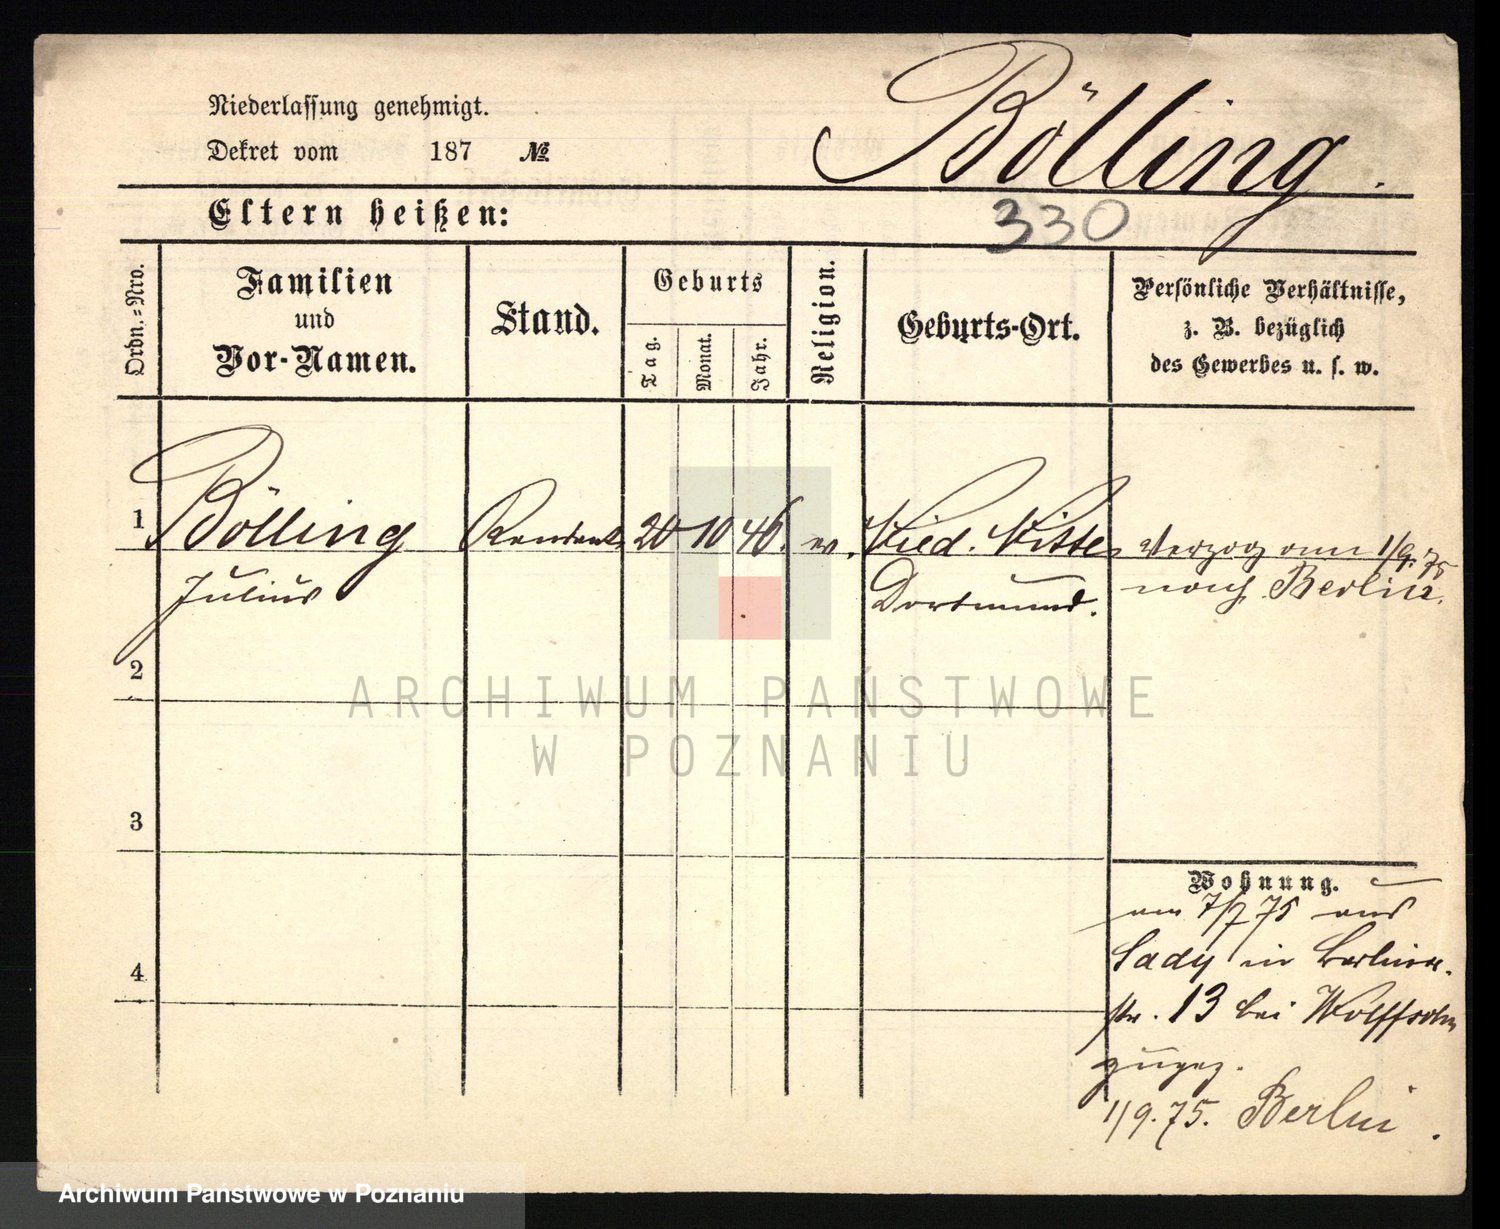 Niederlassung genehmigt.
Dekret vom 187 №
Bölling.
Eltern heißen:
330
Ordn.-Nro.
Familien
und
Vor-Namen.
Stand.
Geburts
Tag.
Monat.
Jahr.
Religion.
Geburts-Ort.
Persönliche Verhältnisse,
z. B. bezüglich
des Gewerbes u. s. w.
1 Bölling Rendant 20 10 46. ev. Wied. Witten verzog am 1/9. 75
Julius Dortmund. nach Berlin.
2
ARCHIWUM PAŃSTWOWE
W POZNANIU
3
Wohnung.
am 7/7 75 aus
Sady in Berliner-
str. 13 bei Wolffsohn
zugez.
4
1/9. 75. Berlin.
Archiwum Państwowe w Poznaniu